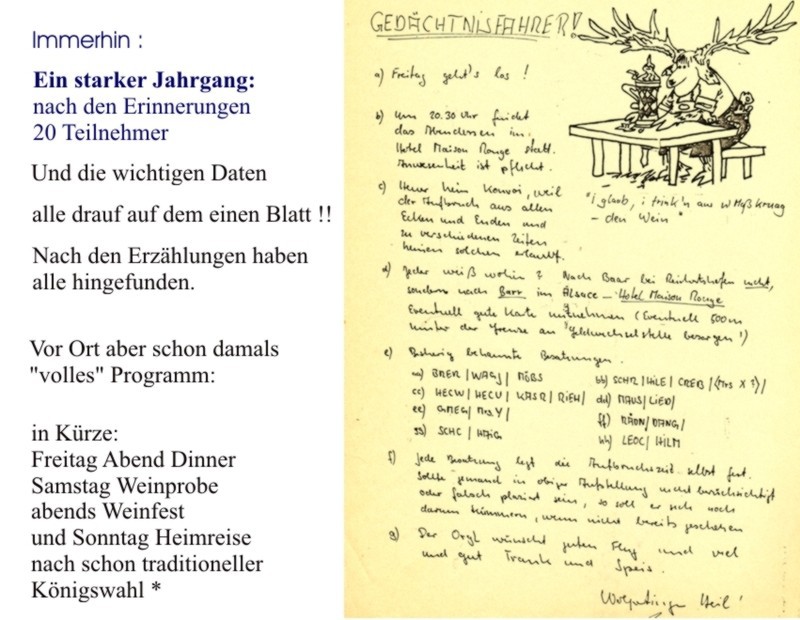 Immerhin :
Ein starker Jahrgang:
nach den Erinnerungen
20 Teilnehmer
Und die wichtigen Daten
alle drauf auf dem einen Blatt !!
Nach den Erzählungen haben
alle hingefunden.
Vor Ort aber schon damals
"volles" Programm:
in Kürze:
Freitag Abend Dinner
Samstag Weinprobe
abends Weinfest
und Sonntag Heimreise
nach schon traditioneller
Königswahl *
GEDÄCHTNISFAHRER!
a) Freitag geht's los !
b) Um 20.30 Uhr findet
das Abendessen im
Hotel Maison Rouge statt.
Anwesenheit ist pflicht.
c) Heuer kein Konvoi, weil
der Aufbruch aus allen
Ecken und Enden und
zu verschiedenen Zeiten
keinen solchen erlaubt.
"i glaub, i trink'n aus'm Maßkruag
- den Wein"
d) Jeder weiß wohin ? Nach Baar bei Reichertshofen nicht,
sondern nach Barr im Alsace - Hotel Maison Rouge
Eventuell gute Karte mitnehmen (Eventuell 500m
hinter der Grenze an "Geldwechselstelle besorgen")
e) Bisherig bekannte Besatzungen.
aa) BRER / WAGJ / MÖBS
bb) SCHR / HILE / CREB / (Mrs X ?) /
cc) HECW / HECU / KASR / RIEH /
dd) MAUS / LIED /
ee) GMEG / Mrs. Y /
ff) RÄDN / DANG /
gg) SCHC / HAIG
hh) LEOC / HILM
f) Jede Besatzung legt die Aufbruchszeit selbst fest.
Sollte jemand in obiger Aufstellung nicht berücksichtigt
oder falsch plaziert sein, so soll er sich noch
darum kümmern, wenn nicht bereits geschehen
g) Der Orgl wünscht guten Flug und viel
und gut Trank und Speis.
Wolpatinger Heil !